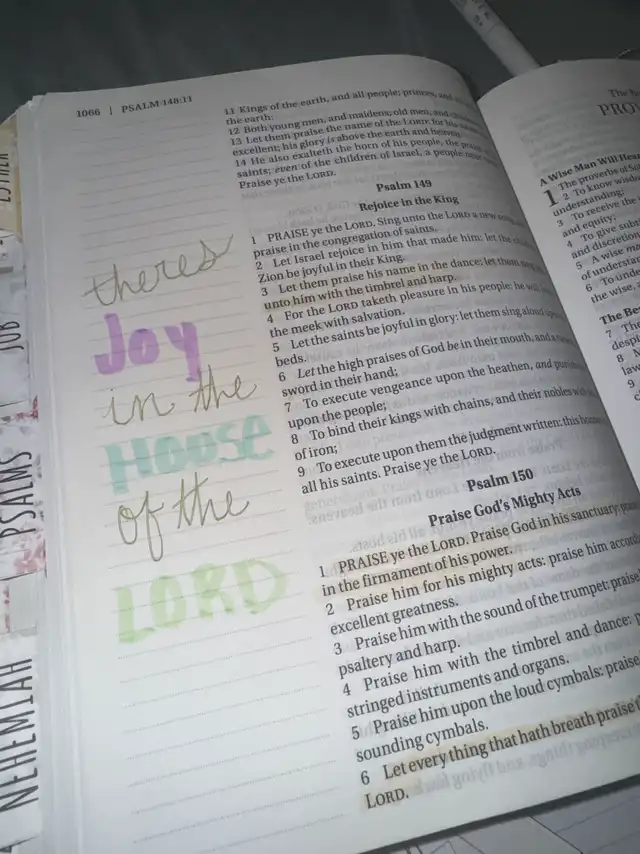 1066 | PSALM 148:11
11 Kings of the earth, and all people; princes, and
the earth:
12 Both young men, and maidens; old men, and
13 Let them praise the name of the LORD: for his
excellent; his glory is above the earth and heaven.
14 He also exalteth the horn of his people, the
saints; even of the children of Israel, a people near
Praise ye the LORD.
Psalm 149
Rejoice in the King
1 PRAISE ye the LORD. Sing unto the LORD a new
praise in the congregation of saints.
2 Let Israel rejoice in him that made him: let the
Zion be joyful in their King.
3 Let them praise his name in the dance: let them
unto him with the timbrel and harp.
4 For the LORD taketh pleasure in his people: he
the meek with salvation.
5 Let the saints be joyful in glory: let them sing aloud
beds.
6 Let the high praises of God be in their mouth, and a
sword in their hand;
7 To execute vengeance upon the heathen, and
upon the people;
8 To bind their kings with chains, and their nobles
of iron;
9 To execute upon them the judgment written: this
all his saints. Praise ye the LORD.
Psalm 150
Praise God's Mighty Acts
1 PRAISE ye the LORD. Praise God in his sanctuary:
in the firmament of his power.
2 Praise him for his mighty acts: praise him
excellent greatness.
3 Praise him with the sound of the trumpet:
psaltery and harp.
4 Praise him with the timbrel and dance:
stringed instruments and organs.
5 Praise him upon the loud cymbals: praise
sounding cymbals.
6 Let every thing that hath breath praise
LORD.
theres
Joy
in the
House
of the
LORD
ESTHER
JOB
PSALMS
NEHEMIAH
The
PRO
A Wise Man Will
1 The proverbs of
2 To know
understanding;
3 To receive the
and equity;
4 To give
and discretion
5 A wise
of
6 To
the wise,
The
7 The
8
9